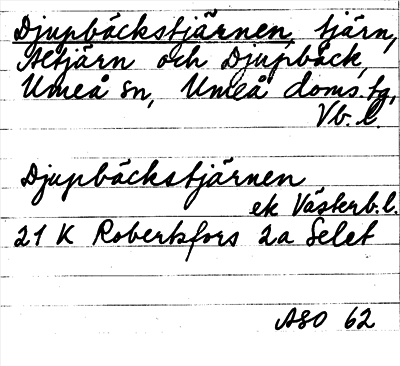 Djupbäckstjärnen, tjärn,
Altjärn och Djupbäck,
Umeå sn, Umeå doms.tg,
Vb.l.
Djupbäckstjärnen
ek Västerb.l.
21 K Robertsfors 2a Selet
ASO 62